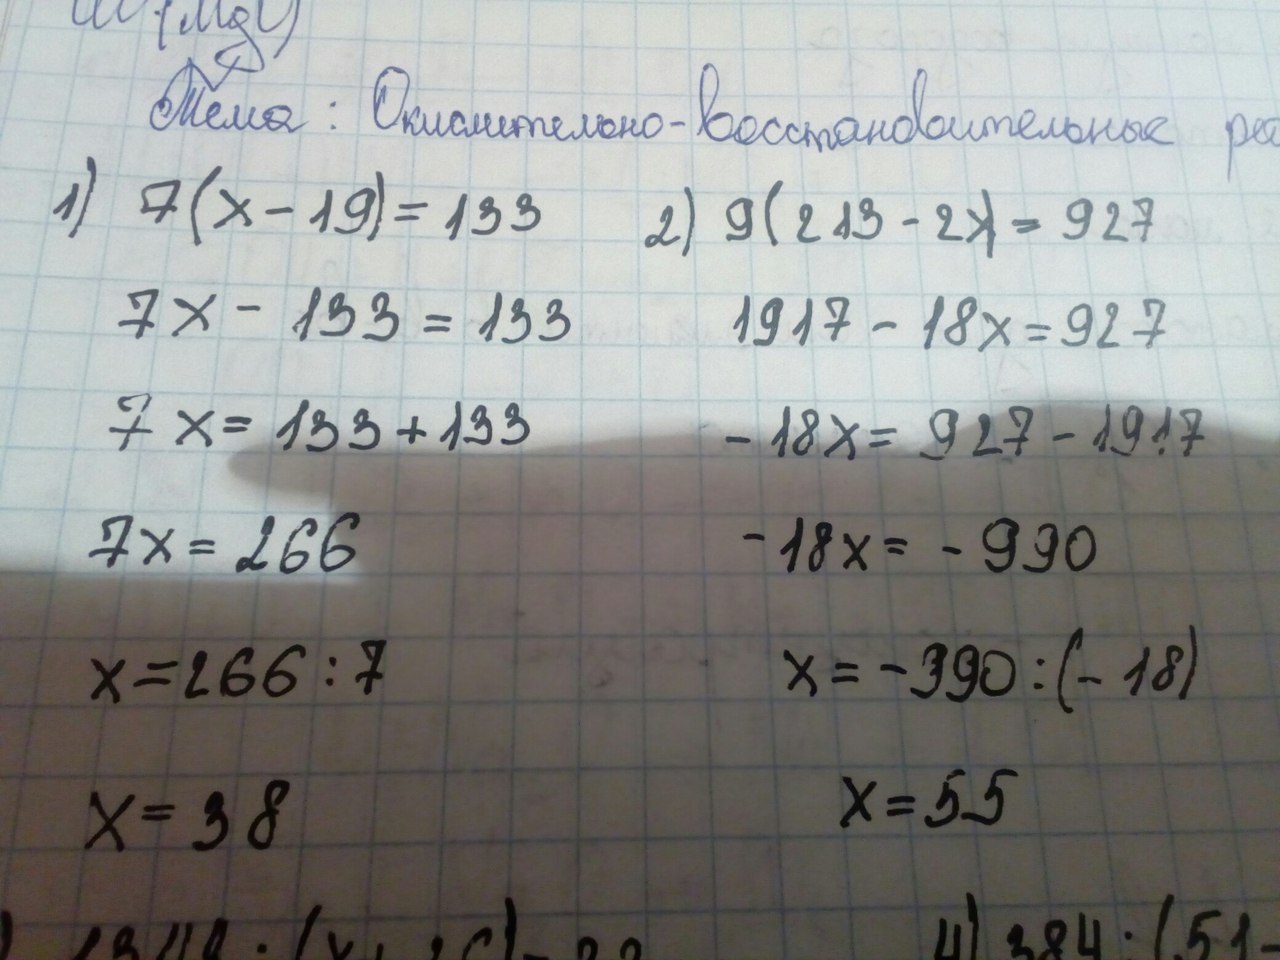 Тема: Окислительно-восстановительные реа
1) 7(x-19)=133
7x-133=133
7x=133+133
7x=266
x=266:7
x=38
2) 9(213-2x)=927
1917-18x=927
-18x=927-1917
-18x=-990
x=-990:(-18)
x=55
4) 384:(51-